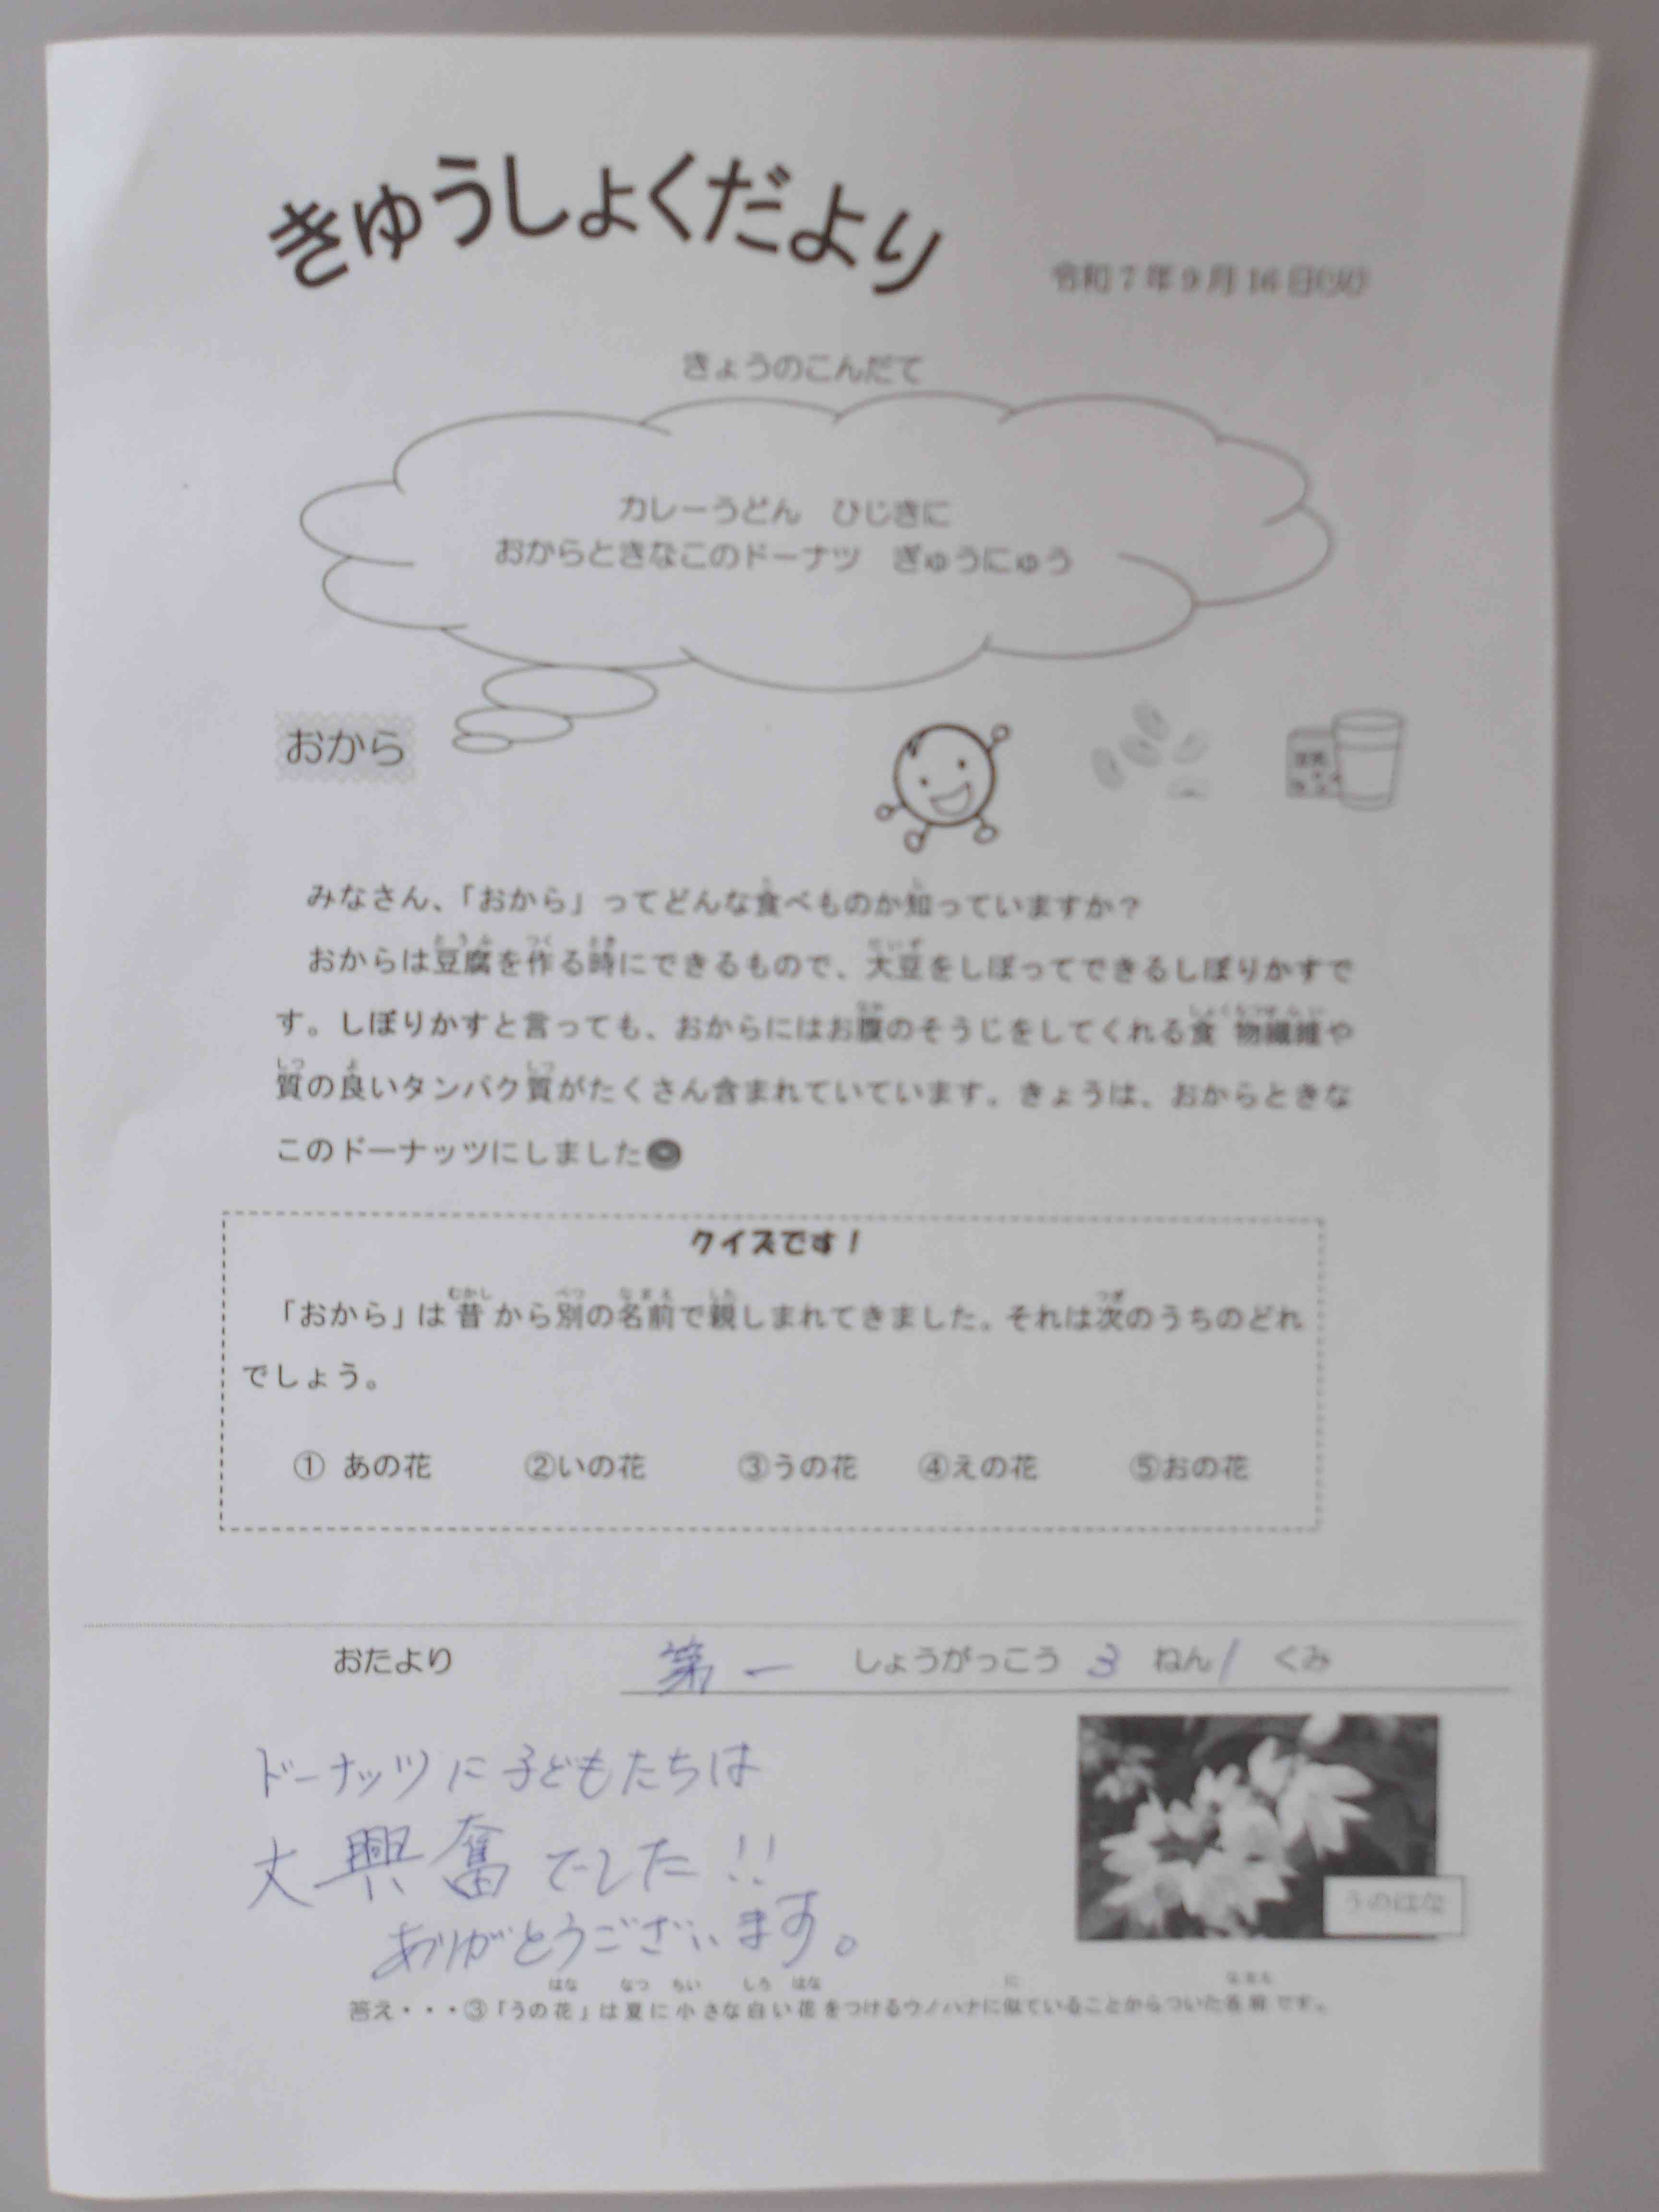 きゅうしょくだより
令和7年9月16日(火)
きょうのこんだて
カレーうどん　ひじきに
おからときなこのドーナツ　ぎゅうにゅう
おから
みなさん、「おから」ってどんな食べものか知っていますか？
おからは豆腐を作る時にできるもので、大豆をしぼってできるしぼりかすで
す。しぼりかすと言っても、おからにはお腹のそうじをしてくれる食物繊維や
質の良いタンパク質がたくさん含まれていています。きょうは、おからときな
このドーナッツにしました
クイズです！
「おから」は昔から別の名前で親しまれてきました。それは次のうちのどれ
でしょう。
① あの花　②いの花　③うの花　④えの花　⑤おの花
おたより　第一　しょうがっこう　3　ねん　1　くみ
ドーナッツに子どもたちは
大興奮でした!!
ありがとうございます。
うのはな
答え・・・③「うの花」は夏に小さな白い花をつけるウノハナに似ていることからついた名前です。